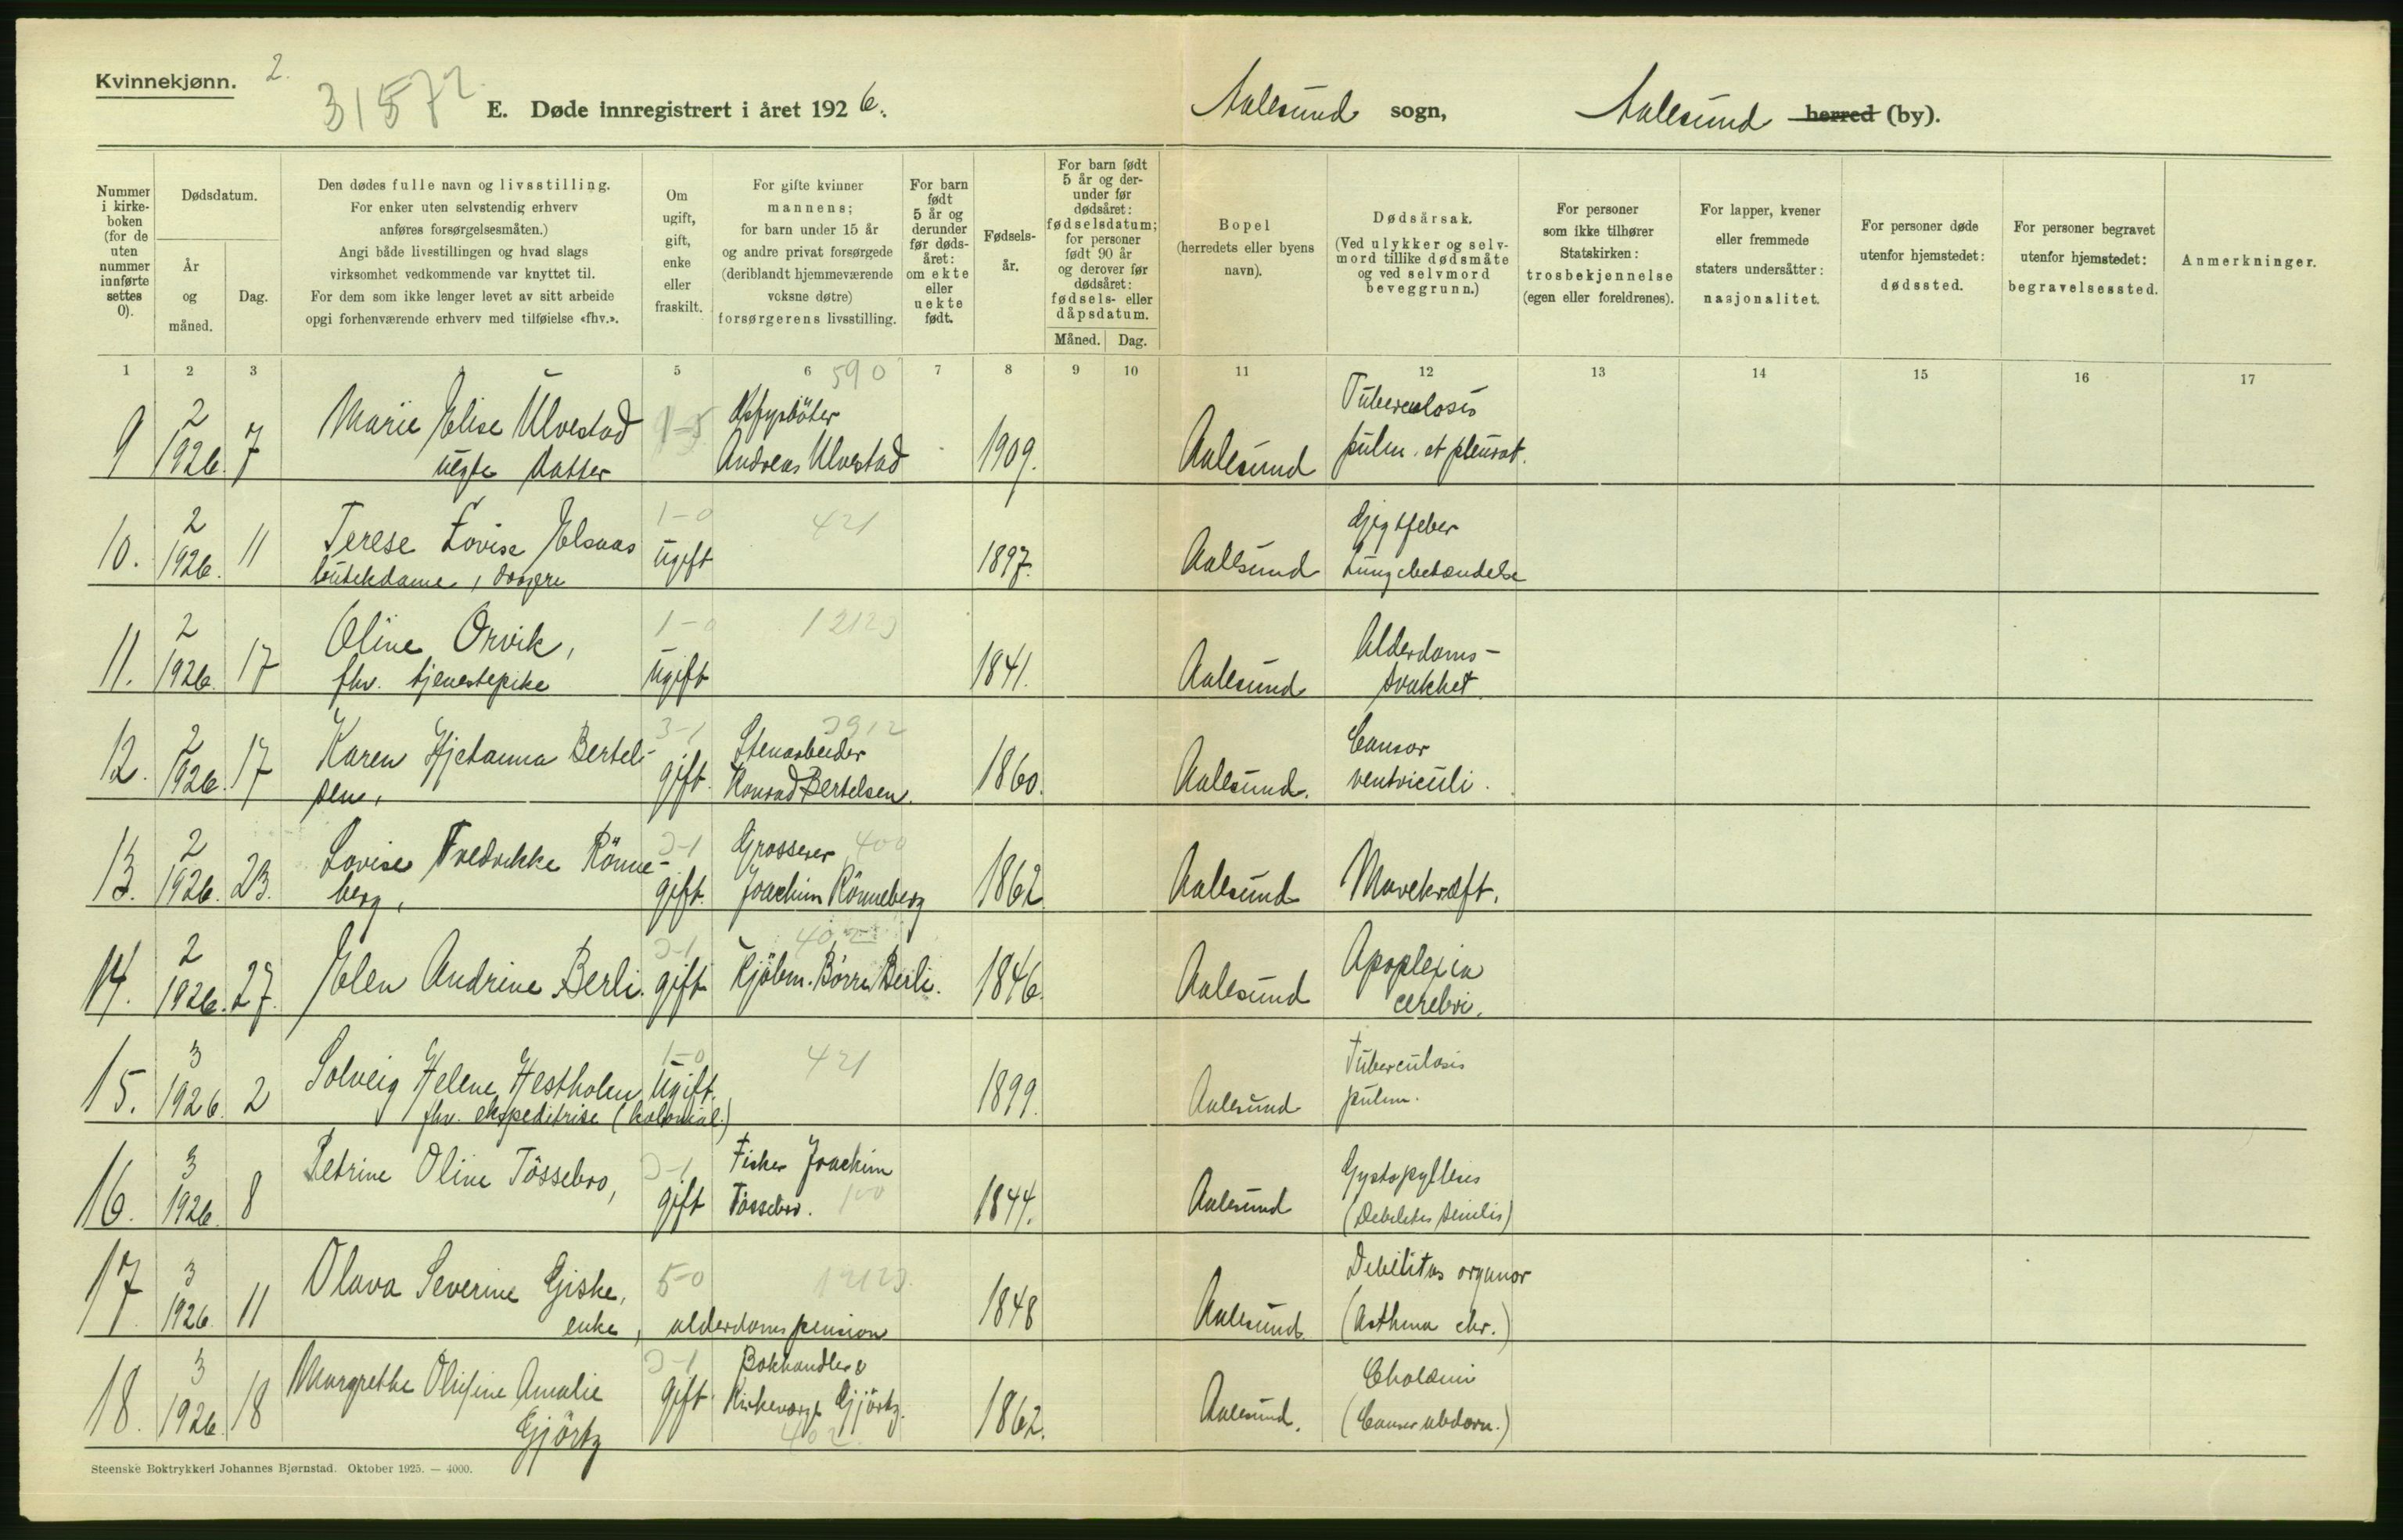 Kvinnekjønn.
2.
31572
E. Døde innregistrert i året 1926.
Aalesund sogn,
Aalesund herred (by).
Nummer i kirkeboken (for de uten nummer innførte settes 0).
Dødsdatum.
År og måned.
Dag.
Den dødes fulle navn og livsstilling.
For enker uten selvstendig erhverv anføres forsørgelsesmåten.)
Angi både livsstillingen og hvad slags virksomhet vedkommende var knyttet til.
For dem som ikke lenger levet av sitt arbeide opgi forhenværende erhverv med tilføielse «fhv.».
Om ugift, gift, enke eller fraskilt.
For gifte kvinner mannens; for barn under 15 år og andre privat forsørgede (deriblandt hjemmeværende voksne døtre) forsørgerens livsstilling.
For barn født 5 år og derunder før dødsåret: om ekte eller uekte født.
Fødselsår.
For barn født 5 år og derunder før dødsåret: fødselsdatum; for personer født 90 år og derover før dødsåret: fødsels- eller dåpsdatum.
Måned. Dag.
Bopel (herredets eller byens navn).
Dødsårsak.
(Ved ulykker og selvmord tillike dødsmåte og ved selvmord beveggrunn.)
For personer som ikke tilhører Statskirken: trosbekjennelse (egen eller foreldrenes).
For lapper, kvener eller fremmede staters undersåtter: nasjonalitet.
For personer døde utenfor hjemstedet: dødssted.
For personer begravet utenfor hjemstedet: begravelsessted.
Anmerkninger.
1 2 3 5 6 7 8 9 10 11 12 13 14 15 16 17
590
9 2 1926. 7 Marie Elise Ulvestad datter Andreas Ulvestad 1909. Aalesund Tuberculosis pulm. et pleurat.
10. 2 1926. 11 Terese Lovise Elsaas butikdame, 1-0 Ugift 421 1897. Aalesund Gigtfeber Lungebetændelse
11. 2 1926. 17 Oline Orvik, fhv. tjenestepike 1-0 Ugift 12123 1841. Aalesund Alderdoms-svakhet.
12. 2 1926. 17 Karen Hjetanna Bertelsen, 3-1 gift. Stenarbeider Konrad Bertelsen. 1860. Aalesund. Cancer ventriculi.
13. 2 1926. 23. Lovise Fredrikke Rönneberg, gift. Grosserer 400 Joachim Rönneberg 1862. Aalesund Mavekræft.
14. 2 1926. 27. Elen Andrine Berli. gift Kjöbm. Börre Berli. 1846. Aalesund Apoplexia cerebri.
15. 3 1926. 2 Solveig Helene Hestholm fhv. ekspeditrise (kolonial.) 1-0 Ugift. 421 1899. Aalesund Tuberculosis pulm.
16. 3 1926. 8 Petrine Oline Tössebro, gift Fisker Joachim Tössebro. 100 1844. Aalesund (Debilitas senilis)
17. 3 1926. 11 Olava Severine Giske, enke, alderdomspension 5-0 1848 Aalesund. Debilitas organor (Asthma chr.)
18. 3 1926. 18 Margrethe Olufine Amalie Gjörtz gift. Bokhandler & Kirkeverge Gjörtz. 402. 1862. Aalesund. Cholæmi (Cancer abdom.)
Steenske Boktrykkeri Johannes Bjørnstad. Oktober 1925. — 4000.